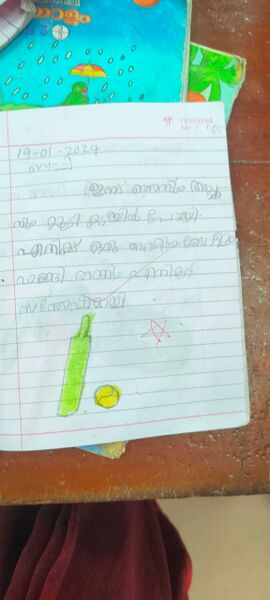 TEACHERS
19-01-2024
ഇന്ന് ഞാനും അച്ഛ
നും കൂടി കടയിൽ പോയി.
എനിക്ക് ഒരു ബാറ്റും ബോളും
വാങ്ങി തന്നു എനിക്ക്
സന്തോഷമായി